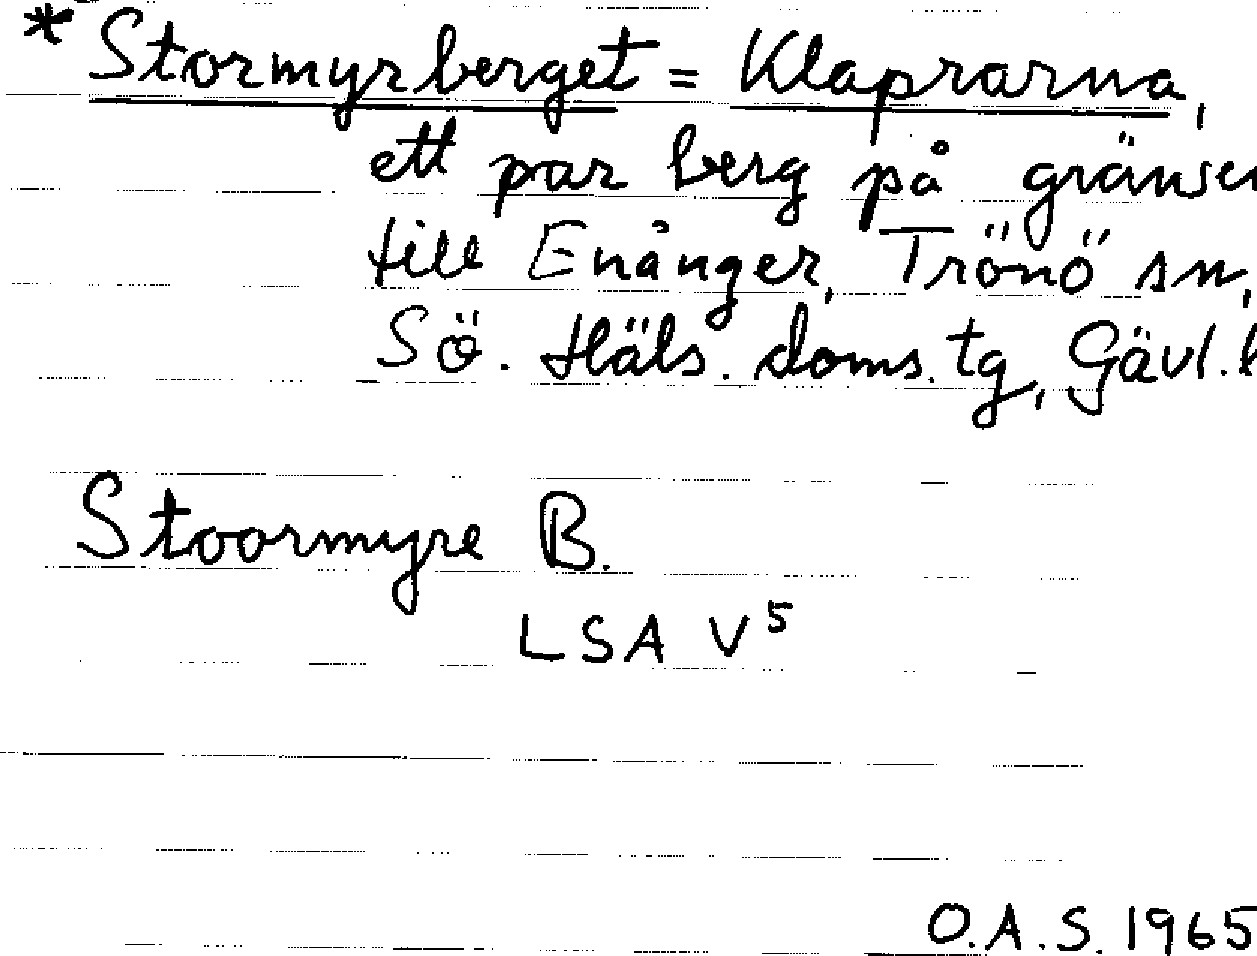 * Stormyrberget = Klaprarna,
ett par berg på gränsen
till Enånger, Trönö sn,
Sö. Häls. doms. tg, Gävl. l
Stoormyre B.
LSA V⁵
O.A.S. 1965